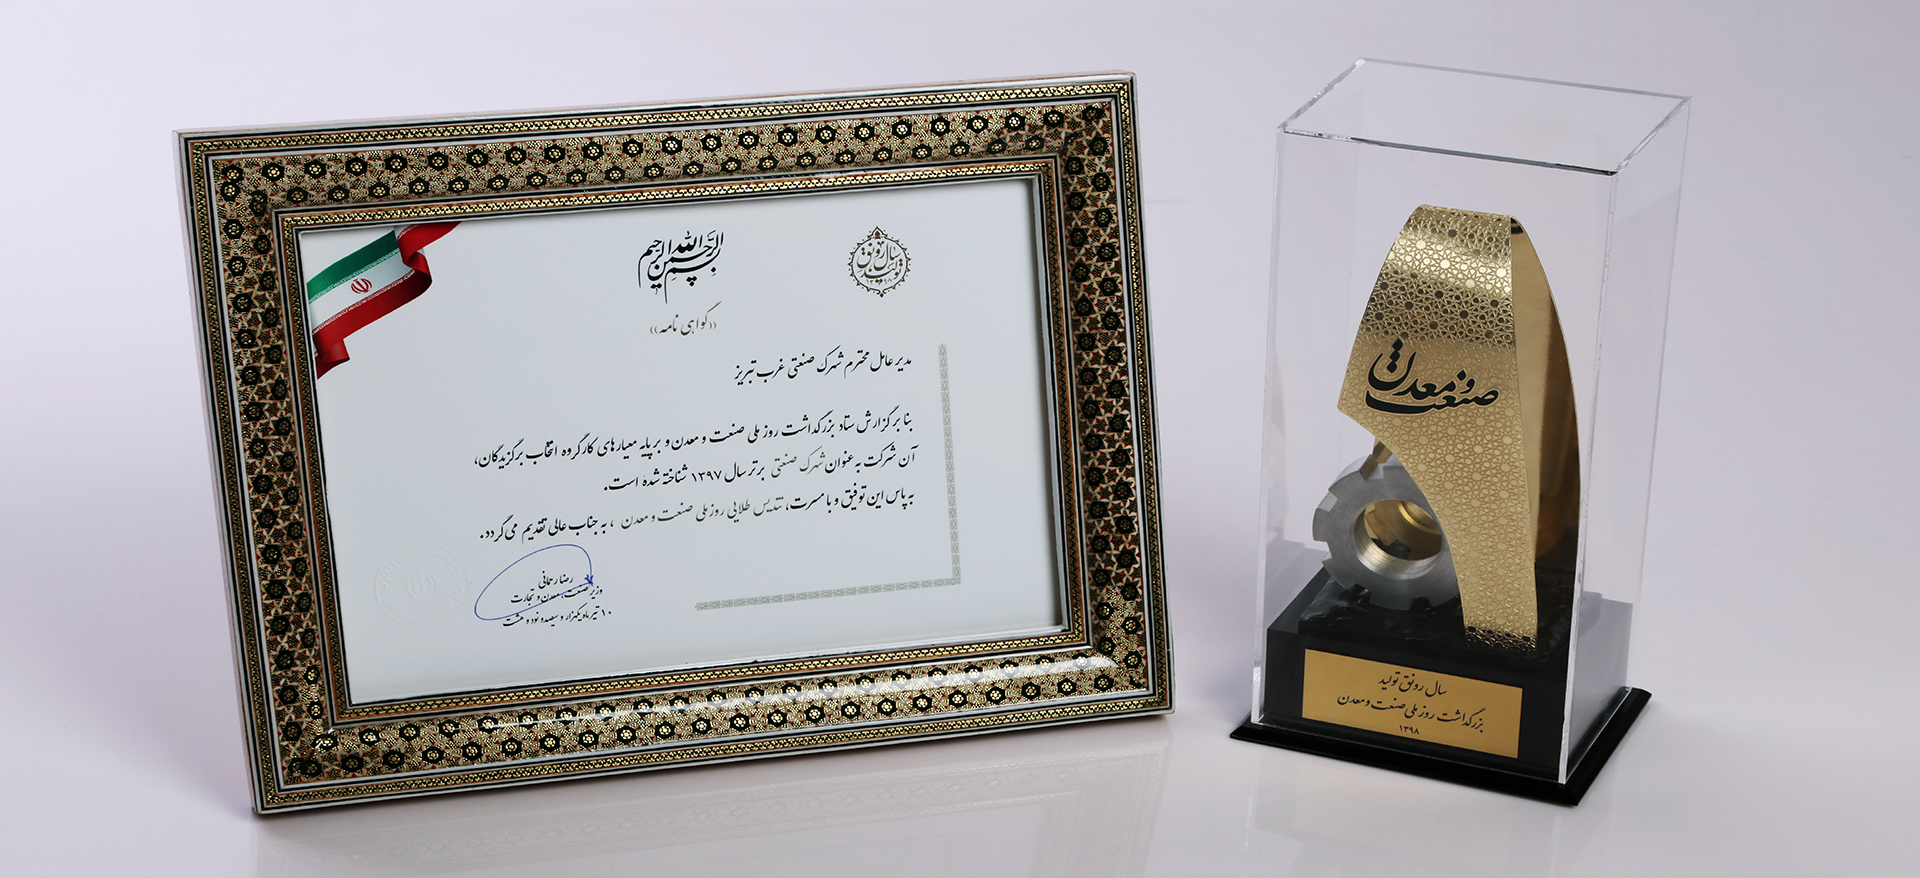 بسم الله الرحمن الرحیم
سال رونق تولید
۱۳۹۸
((گواهی نامه))
مدیر عامل محترم شهرک صنعتی غرب تبریز
بنا بر گزارش ستاد بزرگداشت روز ملی صنعت و معدن و بر پایه معیارهای کارگروه انتخاب برگزیدگان،
آن شرکت به عنوان شهرک صنعتی برتر سال ۱۳۹۷ شناخته شده است.
به پاس این توفیق و با مسرت، تندیس طلایی روز ملی صنعت و معدن ، به جناب عالی تقدیم می گردد.
رضا رحمانی
وزیر صنعت، معدن و تجارت
۱۰ تیر ماه یکهزار و سیصد و نود و هشت
صنعت و معدن
سال رونق تولید
بزرگداشت روز ملی صنعت و معدن
۱۳۹۸